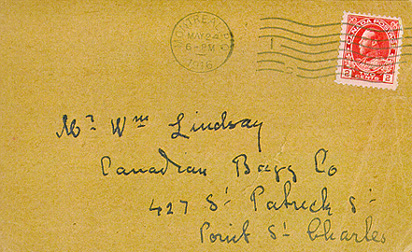 MONTREAL P.Q.
MAY 24
6 - PM
1916
CANADA POSTAGE
2 CENTS 2
Mr. Wm Lindsay
Canadian Bagg Co
427 St Patrick St
Point St Charles